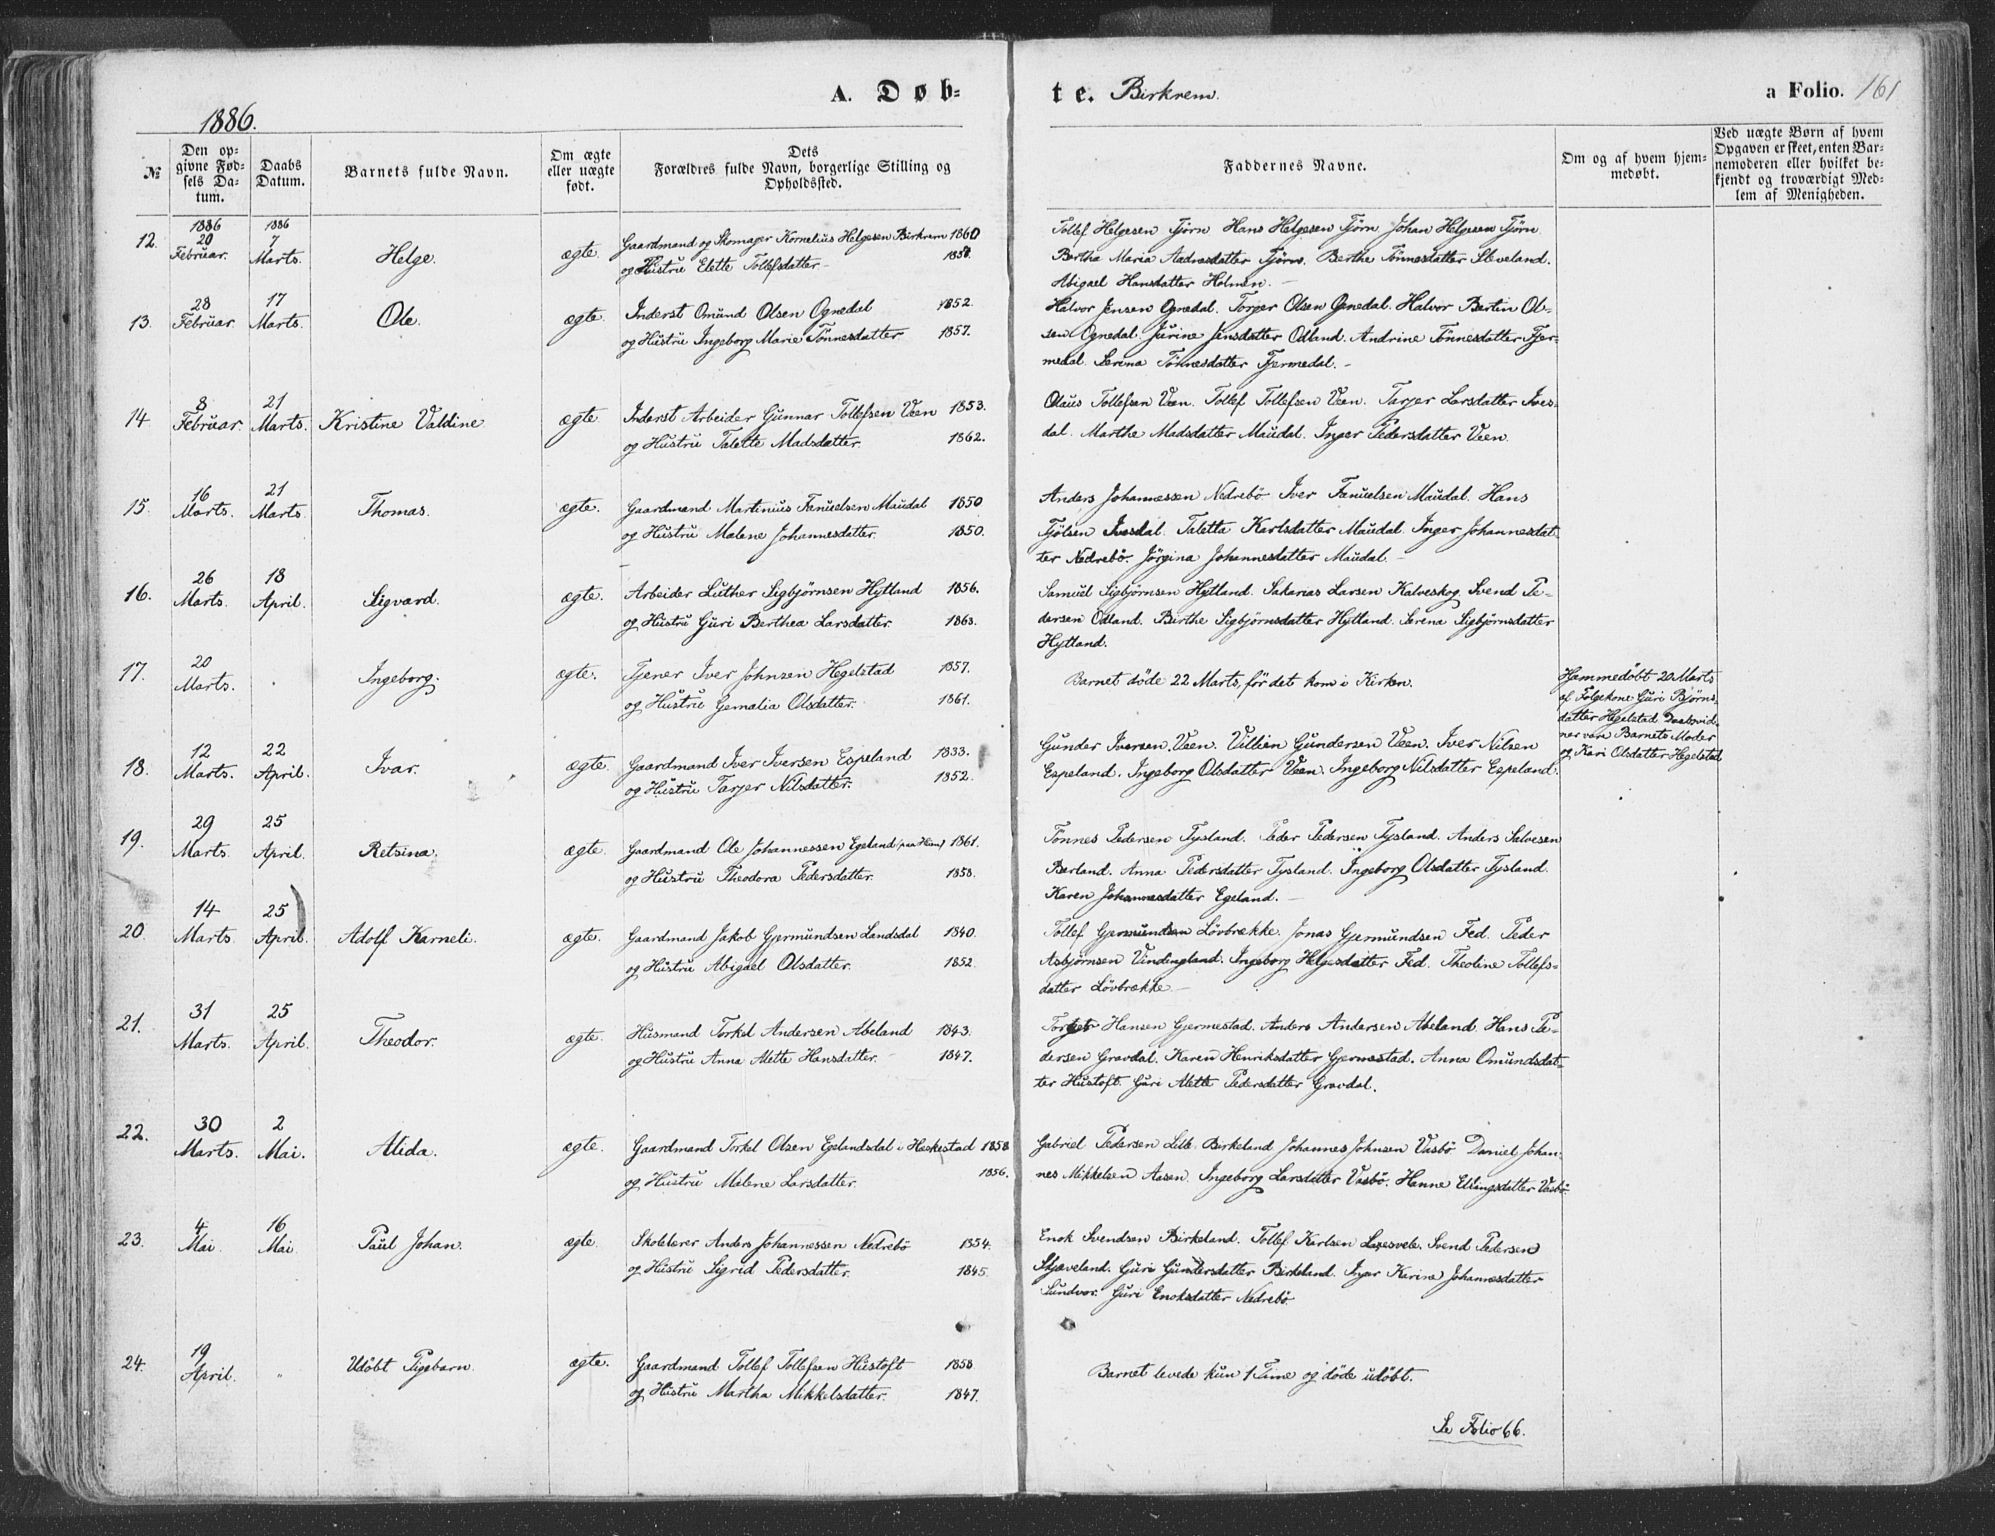 A. Døb=
te. Birkrem.
a Folio. 161
1886.
№
Den op=
givne Fød=
sels Da=
tum.
Daabs
Datum.
Barnets fulde Navn.
Om ægte
eller uægte
født.
Dets
Forældres fulde Navn, borgerlige Stilling og
Opholdssted.
Faddernes Navne.
Om og af hvem hjem=
medøbt.
Ved uægte Børn af hvem
Opgaven er skeet, enten Bar=
nemoderen eller hvilket be=
kjendt og troværdigt Med=
lem af Menigheden.
12. 1886 20 Februar. 1886 7 Marts. Helge. ægte. Gaardmand og Skomager Kornelius Helgesen Birkrem 1860
og Hustru Elette Tollefsdatter
Tollef Helgesen Tjörn Hans Helgesen Tjörn Johan Helgesen Tjörn
Bertha Maria Aadnesdatter Tjörn. Berthe Tönnesdatter Sleveland.
Abigael Hansdatter Holmen.
13. 28 Februar. 17 Marts. Ole. ægte. Inderst Omund Olsen Ognedal 1852.
og Hustru Ingeborg Marie Tönnesdatter 1857.
Halvor Jensen Ognedal. Torger Olsen Ognedal. Halvor Bertin Ol-
sen Ognedal. Jurine Jensdatter Odland. Andrine Tönnesdatter Tjer-
medal. Serina Tönnesdatter Tjermedal.
14. 8 Februar. 21 Marts. Kristine Valdine ægte. Inderst Arbeider Gunnar Tollefsen Veen 1853.
og Hustru Talette Madsdatter. 1862.
Olaus Tollefsen Veen. Tollef Tollefsen Veen. Tarjer Larsdatter Ives-
dal. Marthe Madsdatter Maudal. Inger Pedersdatter Veen.
15. 16 Marts. 21 Marts. Thomas. ægte. Gaardmand Martinius Fanuelsen Maudal 1850
og Hustru Malene Johannesdatter. 1850.
Anders Johannessen Nedrebö. Iver Fanuelsen Maudal. Hans
Tjölsen Ivesdal. Taletta Karlsdatter Maudal. Inger Johannesdat-
ter Nedrebö. Jörgina Johannesdatter Maudal.
16. 26 Marts. 18 April. Sigvard. ægte. Arbeider Luther Sigbjörnsen Hytland 1856.
og Hustru Guri Berthea Larsdatter. 1863.
Samuel Sigbjörnsen Hytland. Sakarias Larsen Kalveskog. Svend Pe-
dersen Odland. Birthe Sigbjörnsdatter Hytland. Serena Sigbjörnsdatter
Hytland.
17. 20 Marts. Ingeborg. ægte. Tjener Iver Johnsen Hegelstad 1857.
og Hustru Gemalia Olsdatter. 1861.
Barnet döde 22 Marts, för det kom i Kirken.
Hjemmedöbt 20 Marts
af Fölgekone Guri Björns-
datter Hegelstad Daabsvid-
ner vare Barnets Moder
og Kari Olsdatter Hegelstad
18. 12 Marts. 22 April. Ivar. ægte. Gaardmand Iver Iversen Espeland 1833.
og Hustru Tarjer Nilsdatter. 1852.
Gunder Iversen Veen. Villien Gundersen Veen. Iver Nilsen
Espeland. Ingeborg Olsdatter Veen. Ingeborg Nilsdatter Espeland.
19. 29 Marts. 25 April. Retsina. ægte. Gaardmand Ole Johannessen Egeland 1861.
og Hustru Theodora Pedersdatter. 1858.
Tönnes Pedersen Tysland. Peder Pedersen Tysland. Anders Salvesen
Berland. Anna Pedersdatter Tysland. Ingeborg Olsdatter Tysland.
Karen Johannesdatter Egeland.
20. 14 Marts. 25 April. Adolf Karneli. ægte. Gaardmand Jakob Gjermundsen Landsdal 1840.
og Hustru Abigael Olsdatter. 1852
Tollef Gjermundsen Lövbrække. Jonas Gjermundsen Fed. Peder
Asbjörnsen Vindingland. Ingeborg Helgesdatter Fed. Theoline Tollefs-
datter Lövbrække
21. 31 Marts. 25 April. Theodor. ægte. Husmand Torkel Andersen Abeland 1843.
og Hustru Anna Alette Hansdatter. 1847.
Hansen Gjermestad. Anders Andersen Abeland. Hans Pe-
dersen Gravdal. Karen Henriksdatter Gjermestad. Anna Omundsdat-
ter Hustoft. Guri Alette Pedersdatter Gravdal.
22. 30 Marts. 2 Mai. Alida. ægte. Gaardmand Torkel Olsen Egelandsdal i Heskestad 1858
og Hustru Malene Larsdatter. 1856.
Gabriel Pedersen Lille Birkeland Johannes Johnsen Vasbö Daniel Johan-
nes Mikkelsen Aasen. Ingeborg Larsdatter Vasbö. Hanne Ellingsdatter Vasbö.
23. 4 Mai. 16 Mai. Paul Johan. ægte. Skolelærer Anders Johannessen Nedrebö 1854.
og Hustru Sigrid Pedersdatter. 1845.
Enok Svendsen Birkeland. Tollef Karlsen Laxesvele. Svend Pedersen
Skjæveland. Guri Gundersdatter Birkeland. Inger Karine Johannesdatter
Sundvor. Guri Enoksdatter Nedrebö.
24. 19 April. " Udöbt Pigebarn. ægte. Gaardmand Tollef Tollefsen Hustoft 1858
og Hustru Martha Mikkelsdatter. 1847.
Barnet levede kun 1 Time og döde udöbt.
Se Folio 66.